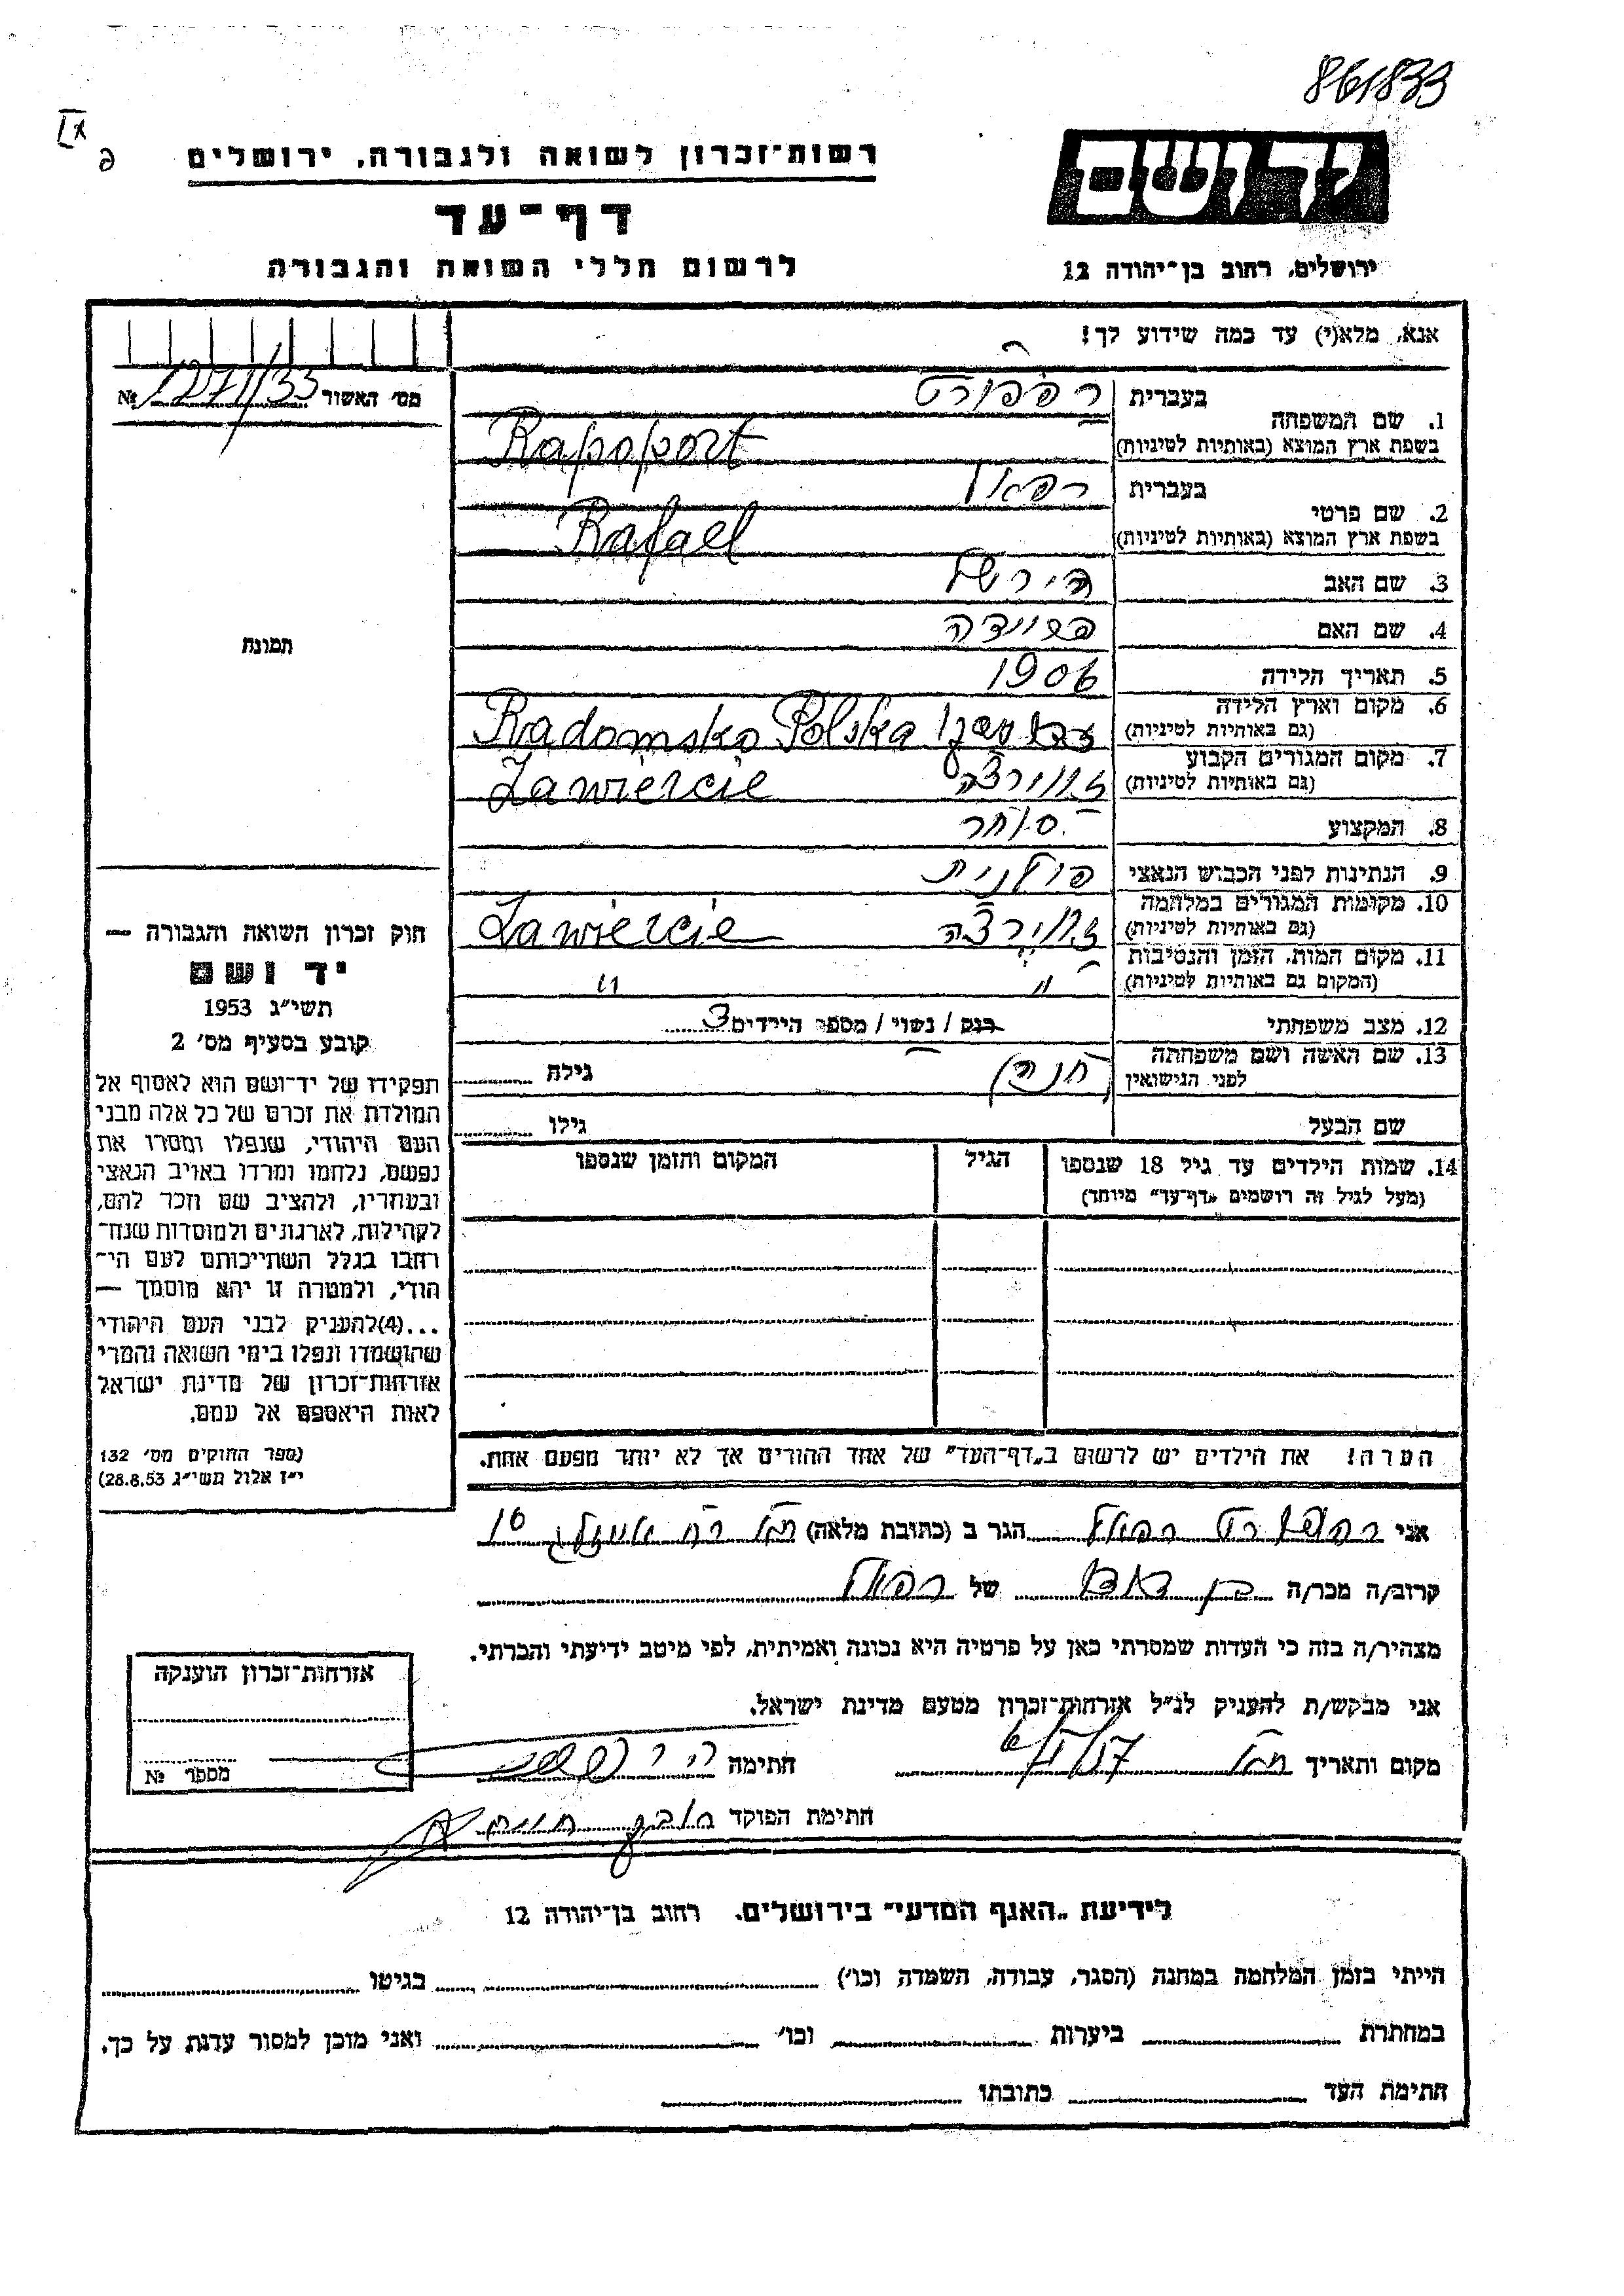 861833
רשות־זכרון לשואה ולגבורה, ירושלים
דף־עד
לרשום חללי השואה והגבורה
יד ושם
ירושלים, רחוב בן־יהודה 12
אנא, מלא(י) עד כמה שידוע לך!
מס' האשור №
1. שם המשפחה בעברית רפפורט
בשפת ארץ המוצא (באותיות לטיניות) Rapoport
2. שם פרטי בעברית רפאל
בשפת ארץ המוצא (באותיות לטיניות) Rafael
3. שם האב הירשל
4. שם האם
5. תאריך הלידה 1906
6. מקום וארץ הלידה (גם באותיות לטיניות) Radomsko Polska
7. מקום המגורים הקבוע (גם באותיות לטיניות) זאוירצה Zawiercie
8. המקצוע סוחר
9. הנתינות לפני הכבוש הנאצי פולנית
10. מקומות המגורים במלחמה (גם באותיות לטיניות) זאוירצה Zawiercie
11. מקום המות, הזמן והנסיבות (המקום גם באותיות לטיניות) " "
12. מצב משפחתי רווק / נשוי / מספר הילדים 3
13. שם האשה ושם משפחתה לפני הנישואין גילה
שם הבעל גילו
14. שמות הילדים עד גיל 18 שנספו (מעל לגיל זה רושמים „דף־עד" מיוחד) הגיל המקום והזמן שנספו
הערה! את הילדים יש לרשום ב„דף־העד" של אחד ההורים אך לא יותר מפעם אחת.
תמונה
חוק זכרון השואה והגבורה —
יד ושם
תשי"ג 1953
קובע בסעיף מס' 2
תפקידו של יד־ושם הוא לאסוף אל
המולדת את זכרם של כל אלה מבני
העם היהודי, שנפלו ומסרו את
נפשם, נלחמו ומרדו באויב הנאצי
ובעוזריו, ולהציב שם וזכר להם,
לקהילות, לארגונים ולמוסדות שנח־
רבו בגלל השתייכותם לעם הי־
הודי, ולמטרה זו יהא מוסמך —
...(4) להעניק לבני העם היהודי
שהושמדו ונפלו בימי השואה והמרי
אזרחות־זכרון של מדינת ישראל
לאות היאספם אל עמם.
(ספר החוקים מס' 132
י"ז אלול תשי"ג 28.8.53)
אני רפפורט הגר ב (כתובת מלאה) 10
קרוב/ה מכר/ה בן דוד של רפאל
מצהיר/ה בזה כי העדות שמסרתי כאן על פרטיה היא נכונה ואמיתית, לפי מיטב ידיעתי והכרתי.
אני מבקש/ת להעניק לנ"ל אזרחות־זכרון מטעם מדינת ישראל.
מקום ותאריך חתימה
חתימת הפוקד
אזרחות־זכרון הוענקה
מספר №
לידיעת „האגף המדעי" בירושלים, רחוב בן־יהודה 12
הייתי בזמן המלחמה במחנה (הסגר, עבודה, השמדה וכו') בגיטו
במחתרת ביערות וכו' ואני מוכן למסור עדות על כך.
חתימת העד כתובתו